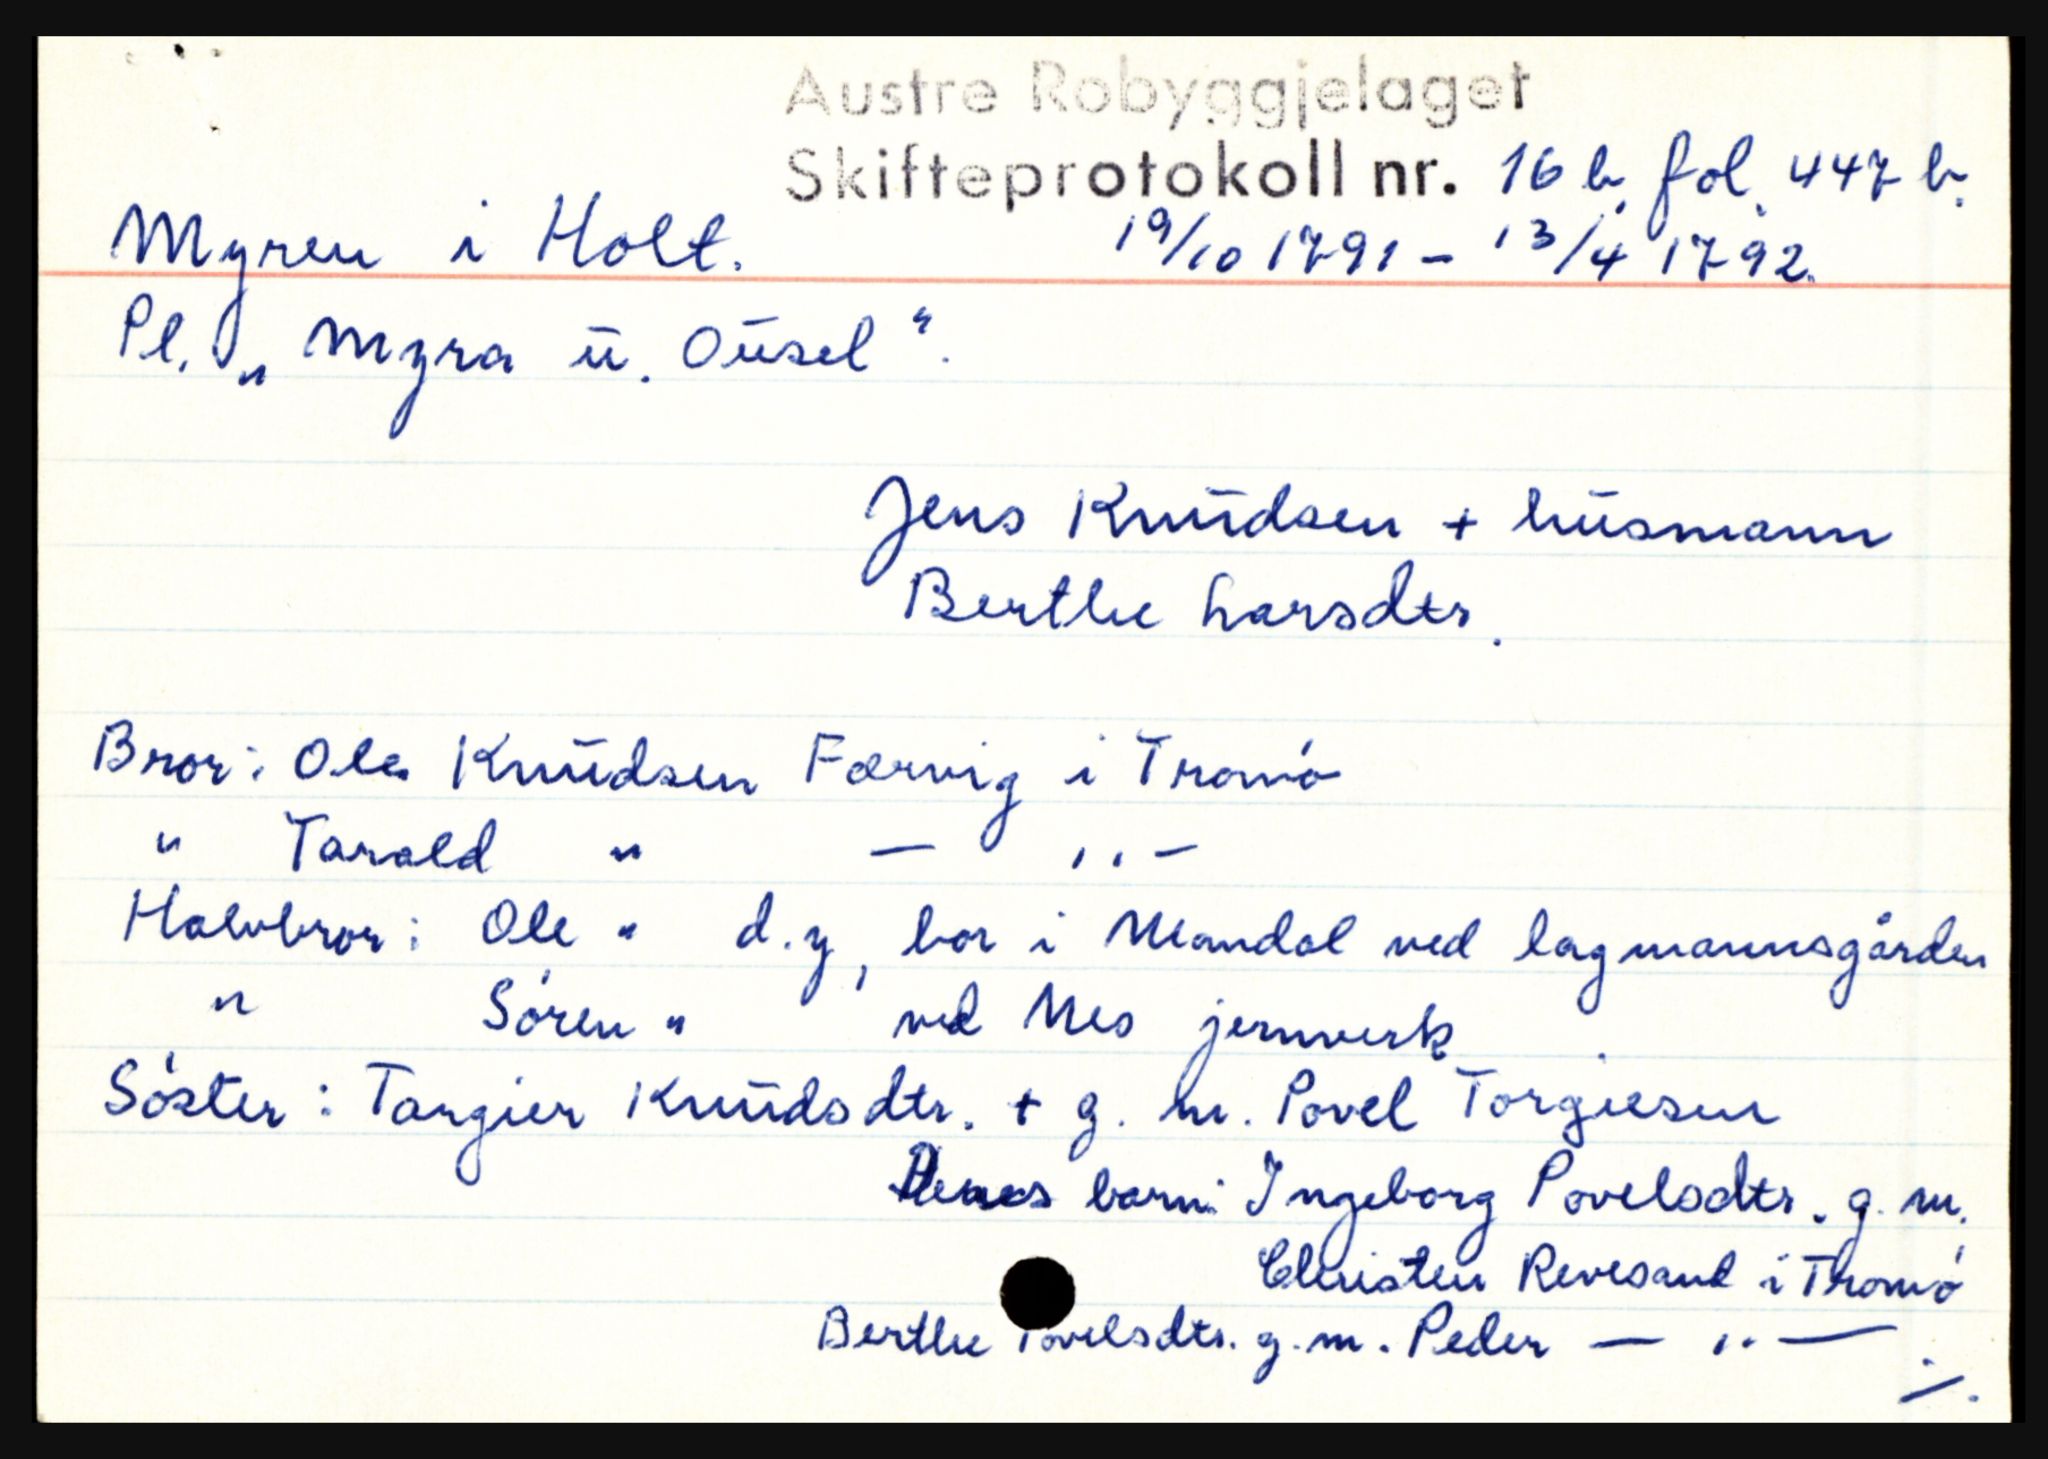 Austre Robyggjelaget
Skifteprotokoll nr. 16 b. fol. 447 b.
Myren i Holt. 19/10 1791 - 13/4 1792.
Pl. „Myra ū. Oūsel“.
Jens Knūdsen + hūsmann
Berthe Larsdtr.
Bror: Ole Knūdsen Færvig i Tromö
" Tarald " — ,,—
Halvbror: Ole " d.y, bor i Mandal ved lagmannsgården
" Sören " ved Nes jernverk
Söster: Tangier Knūdsdtr. + g. m. Povel Torgiesen
barn: Ingeborg Povelsdtr. g. m.
Christen Revesand i Tromö
Berthe Povelsdtr. g. m. Peder — ,, —
./.